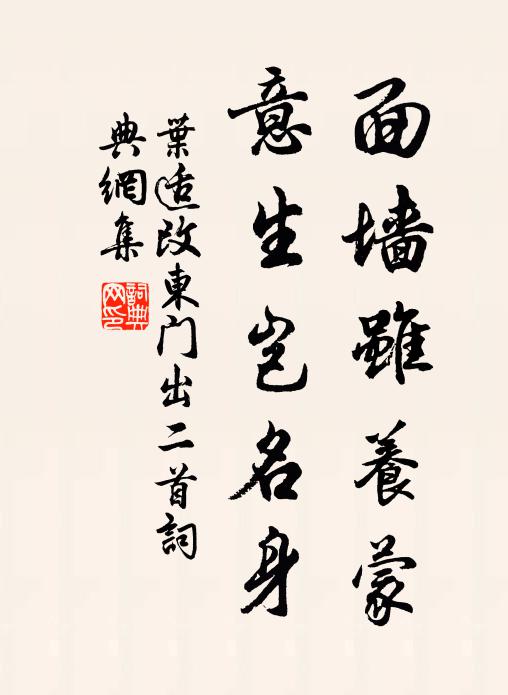 面墙雖養蒙
意生岂名身
葉适改東门出二首詞
典網集
詞典网印